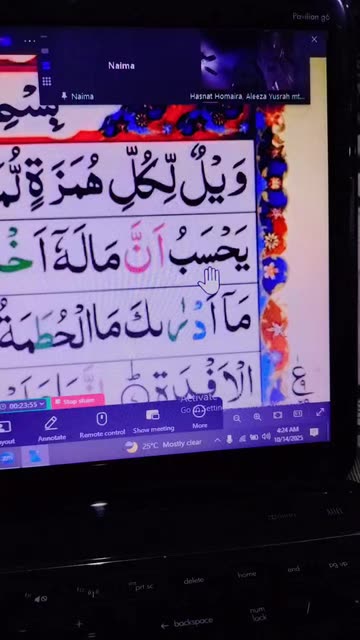 Pavilion g6
Naima
Naima
Hasnat Homaira, Aleeza Yusrah mt...
بِسْمِ
وَيْلٌ لِّكُلِّ هُمَزَةٍ
يَحْسَبُ اَنَّ مَالَهٗۤ
مَاۤ اَدْرٰىكَ مَا الْحُطَمَةُ
الْاَفْـِٕدَةِ
00:23:55
Stop share
Activate
Annotate
Remote control
Show meeting
More
25°C Mostly clear
4:24 AM
10/14/2025
prt sc
delete
home
end
pg up
backspace
num
lock